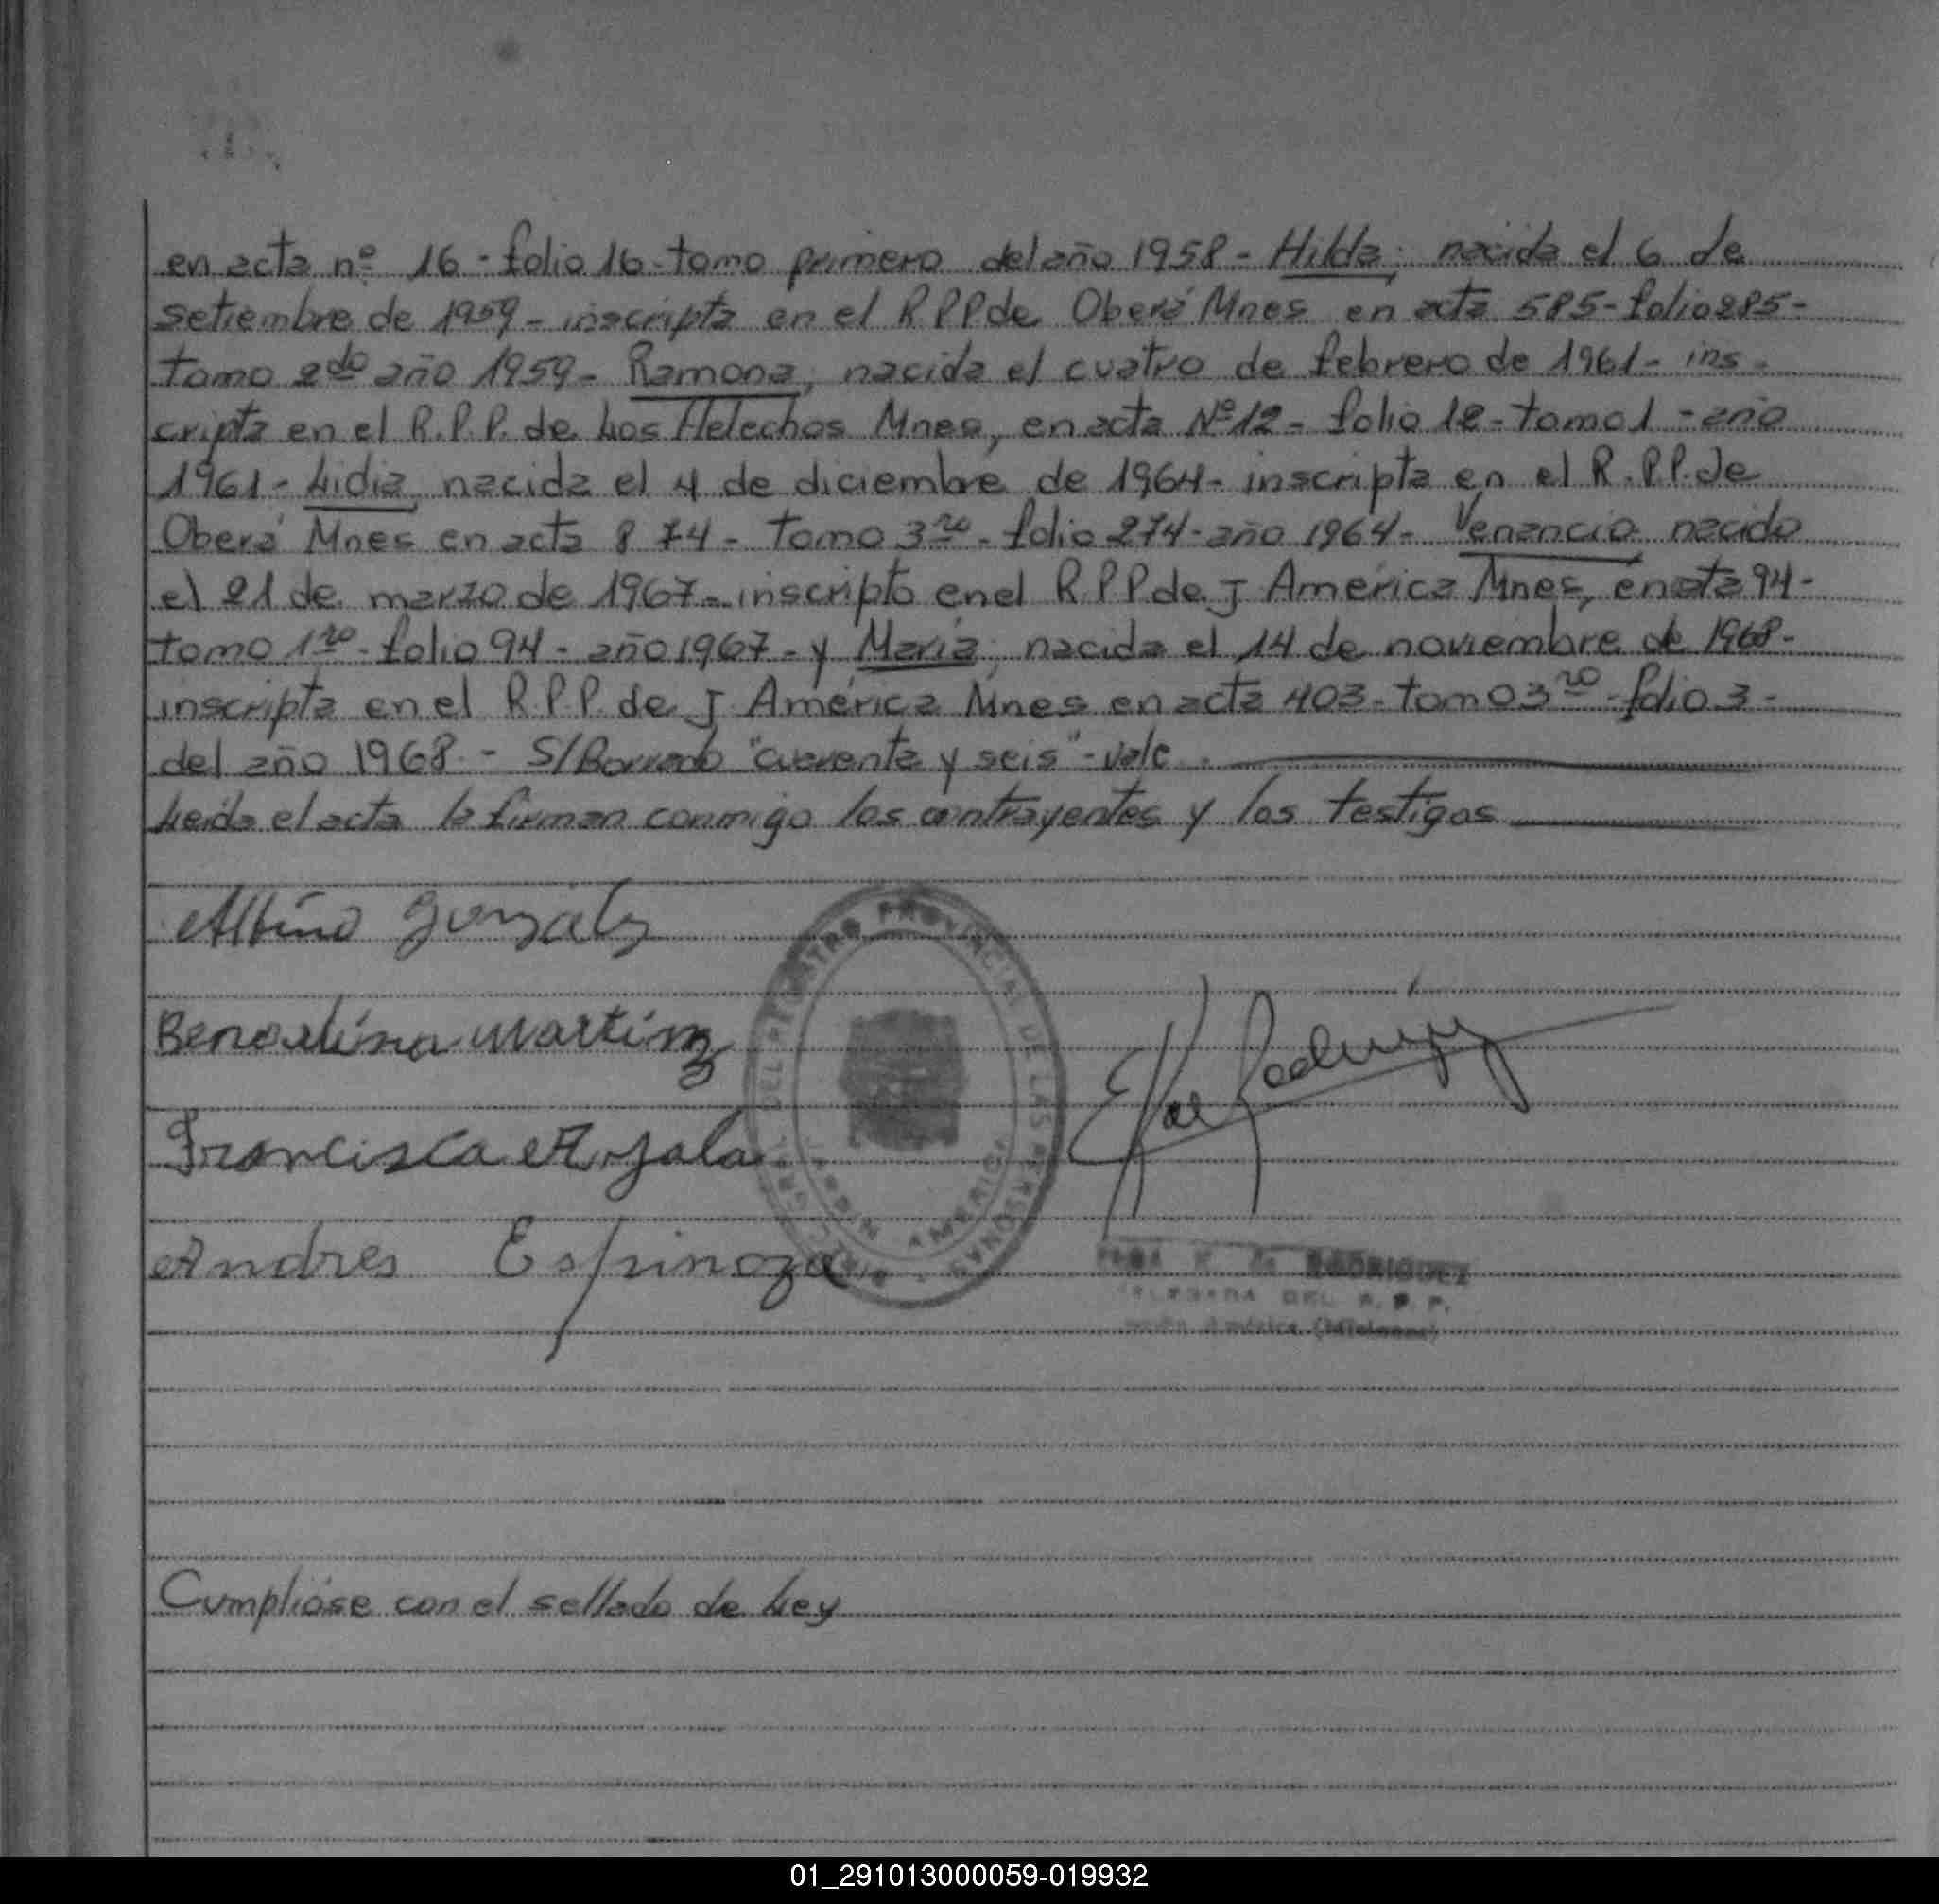 en acta nº 16 - folio 16 - tomo primero del año 1958 - Hilda, nacida el 6 de
setiembre de 1959 - inscripta en el R.P.P de Oberá Mnes en acta 585 - folio 285 -
tomo 2do año 1959 - Ramona, nacida el cuatro de febrero de 1961 - ins -
cripta en el R.P.P. de Los Helechos Mnes, en acta Nº 12 - folio 12 - tomo 1 - año
1961 - Lidia, nacida el 4 de diciembre de 1964 - inscripta en el R.P.P. de
Oberá Mnes en acta 874 - tomo 3ro - folio 274 - año 1964 - Venancio nacido
el 21 de marzo de 1967 - inscripto en el R.P.P de J América Mnes, en acta 94 -
tomo 1ro - folio 94 - año 1967 - y María, nacida el 14 de noviembre de 1968 -
inscripta en el R.P.P. de J. América Mnes en acta 403 - tomo 3ro - folio 3 -
del año 1968 - S/Borrado "cuarenta y seis" - vale.
Leida el acta la firman conmigo los contrayentes y los testigos
Albino Gonzalez
REGISTRO PROVINCIAL DE LAS PERSONAS
Martinez
Francisca Ayala
JARDIN AMERICA
Andres Espinoza
DE RODRIGUEZ
DELEGADA DEL R.P.P.
Jardín América (Misiones)
Cumplióse con el sellado de Ley
01_291013000059-019932